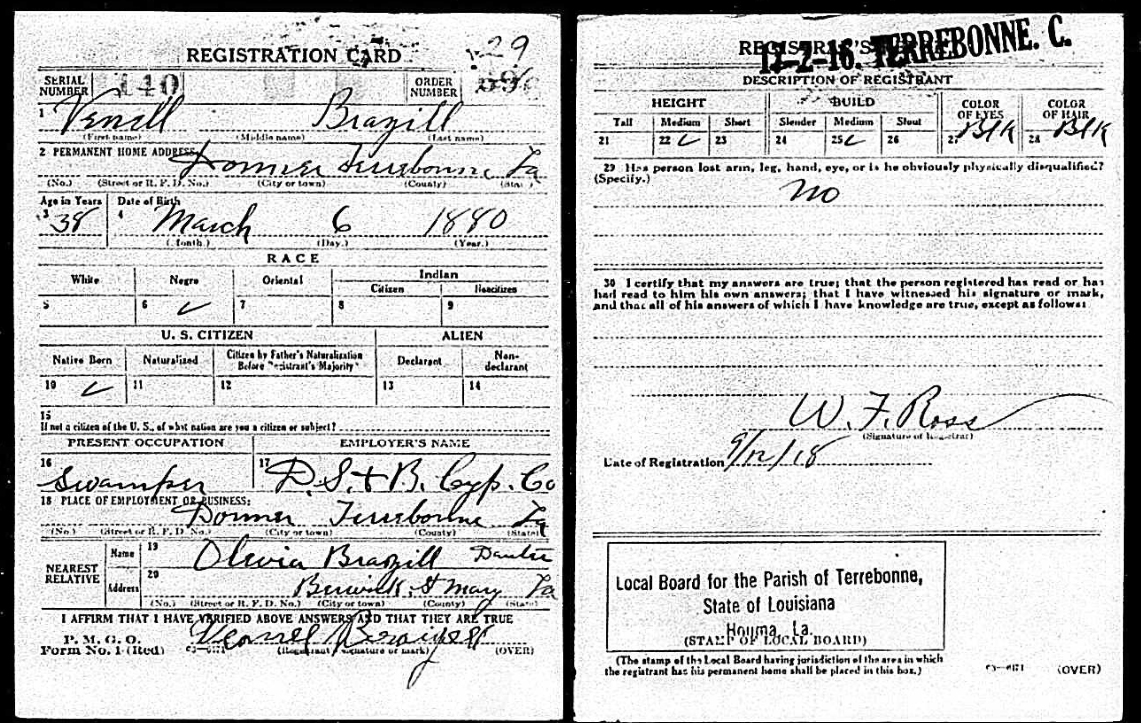 REGISTRATION CARD
29
SERIAL NUMBER 140
ORDER NUMBER
1 Venell Brazill
(First name) (Middle name) (Last name)
2 PERMANENT HOME ADDRESS
Donner Terrebonne La
(No.) (Street or R. F. D. No.) (City or town) (County) (State)
Age in Years Date of Birth
3 38 4 March 6 1880
(Month.) (Day.) (Year.)
RACE
White Negro Oriental Indian
Citizen Noncitizen
5 6 ✓ 7 8 9
U. S. CITIZEN ALIEN
Native Born Naturalized Citizen by Father's Naturalization Before Registrant's Majority Declarant Non-declarant
10 ✓ 11 12 13 14
15
If not a citizen of the U. S., of what nation are you a citizen or subject?
PRESENT OCCUPATION EMPLOYER'S NAME
16 Swamper 17 D. S. + B. Cyp. Co
18 PLACE OF EMPLOYMENT OR BUSINESS:
Donner Terrebonne La
(No.) (Street or R. F. D. No.) (City or town) (County) (State)
NEAREST RELATIVE
Name 19 Olevia Brazill
Address 20 Berwick St Mary La
(No.) (Street or R. F. D. No.) (City or town) (County) (State)
I AFFIRM THAT I HAVE VERIFIED ABOVE ANSWERS AND THAT THEY ARE TRUE
P. M. G. O.
Form No. 1 (Red) 03—6171 (Registrant's signature or mark) (OVER)
REGISTRAR'S
17-2-16. TERREBONNE. C.
DESCRIPTION OF REGISTRANT
HEIGHT BUILD COLOR OF EYES COLOR OF HAIR
Tall Medium Short Slender Medium Stout
21 22 ✓ 23 24 25 ✓ 26 27 Blk 28 Blk
29 Has person lost arm, leg, hand, eye, or is he obviously physically disqualified?
(Specify.)
no
30 I certify that my answers are true; that the person registered has read or has
had read to him his own answers; that I have witnessed his signature or mark,
and that all of his answers of which I have knowledge are true, except as follows:
W. F. Ross
(Signature of Registrar)
Date of Registration 9/12/18
Local Board for the Parish of Terrebonne,
State of Louisiana
Houma, La.
(STAMP OF LOCAL BOARD)
(The stamp of the Local Board having jurisdiction of the area in which
the registrant has his permanent home shall be placed in this box.)
03—6171 (OVER)